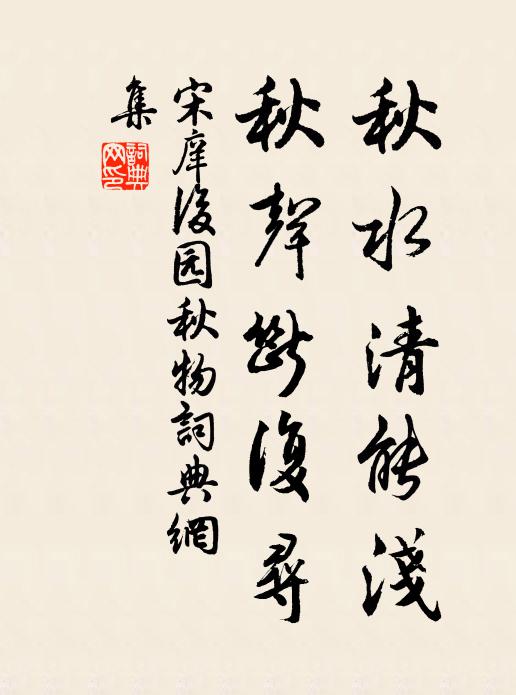 秋水清能淺
秋聲斷復尋
宋庠後园秋物詞典網
集
詞典
网印